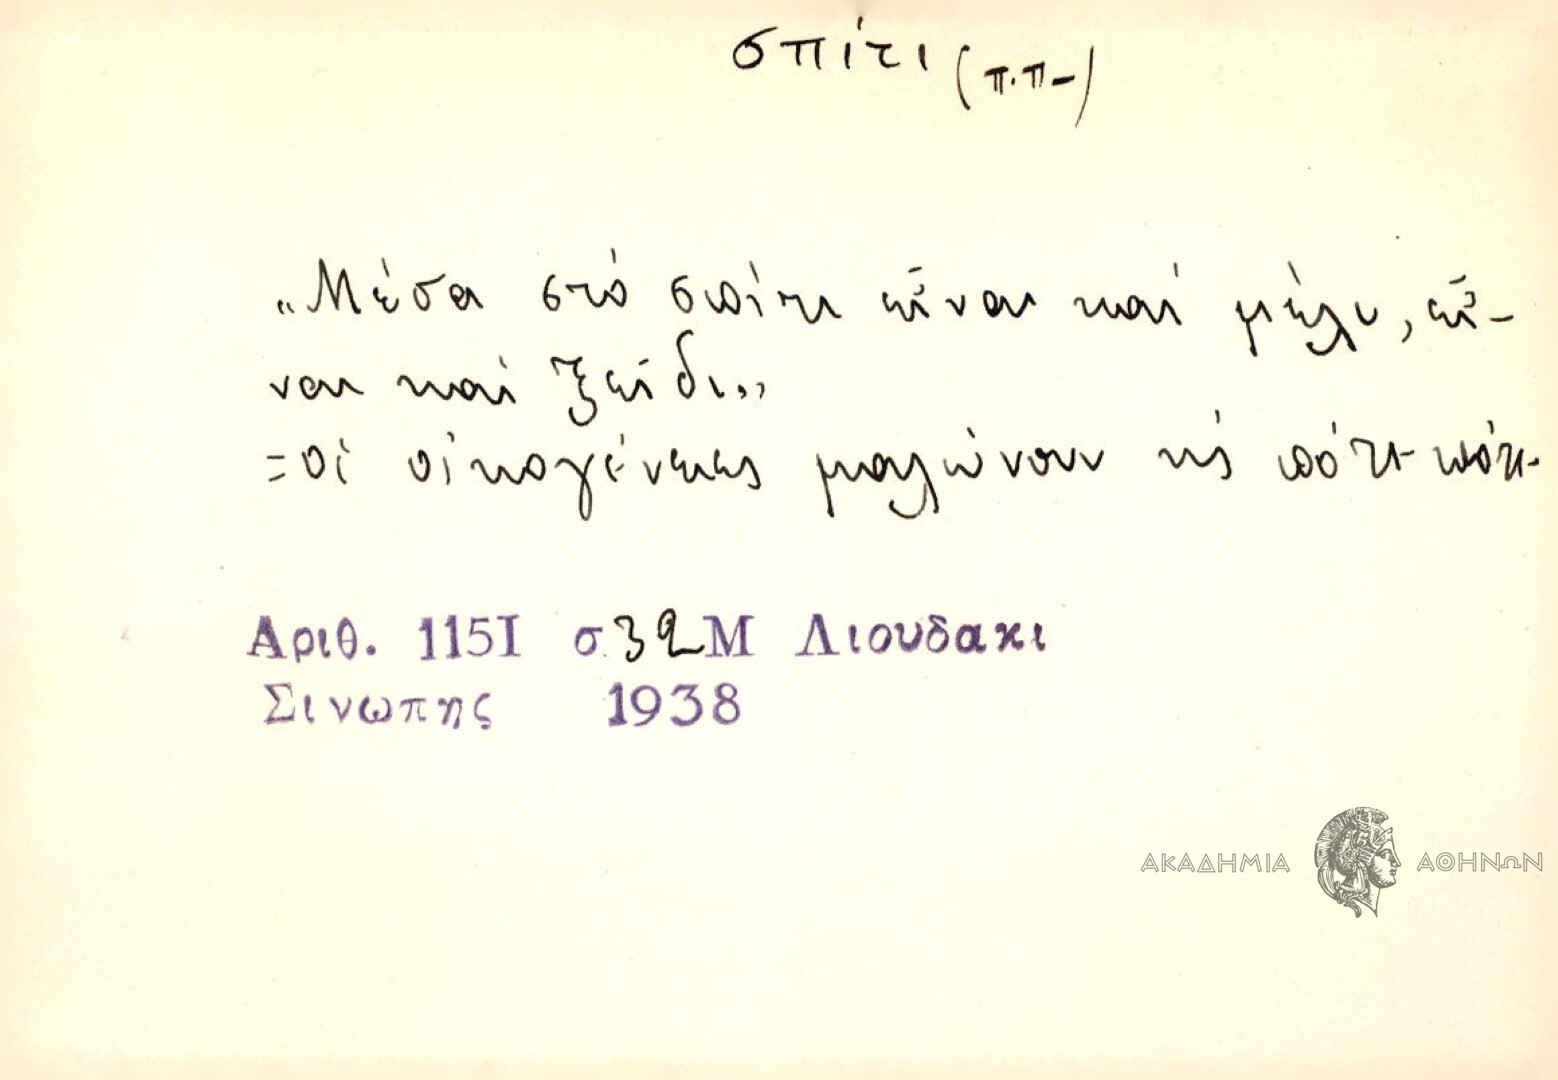 σπίτι (π.π-)
„Μέσα στὸ σπίτι εἶναι καὶ μέλι, εἶ-
ναι καὶ ξείδι„
=οἱ οἰκογένειες μαλώνουν κι̉ς πότε πότε
Αριθ. 1151 σ.32 Μ Λιουδακι
Σινωπης 1938
ΑΚΑΔΗΜΙΑ ΑΘΗΝΩΝ